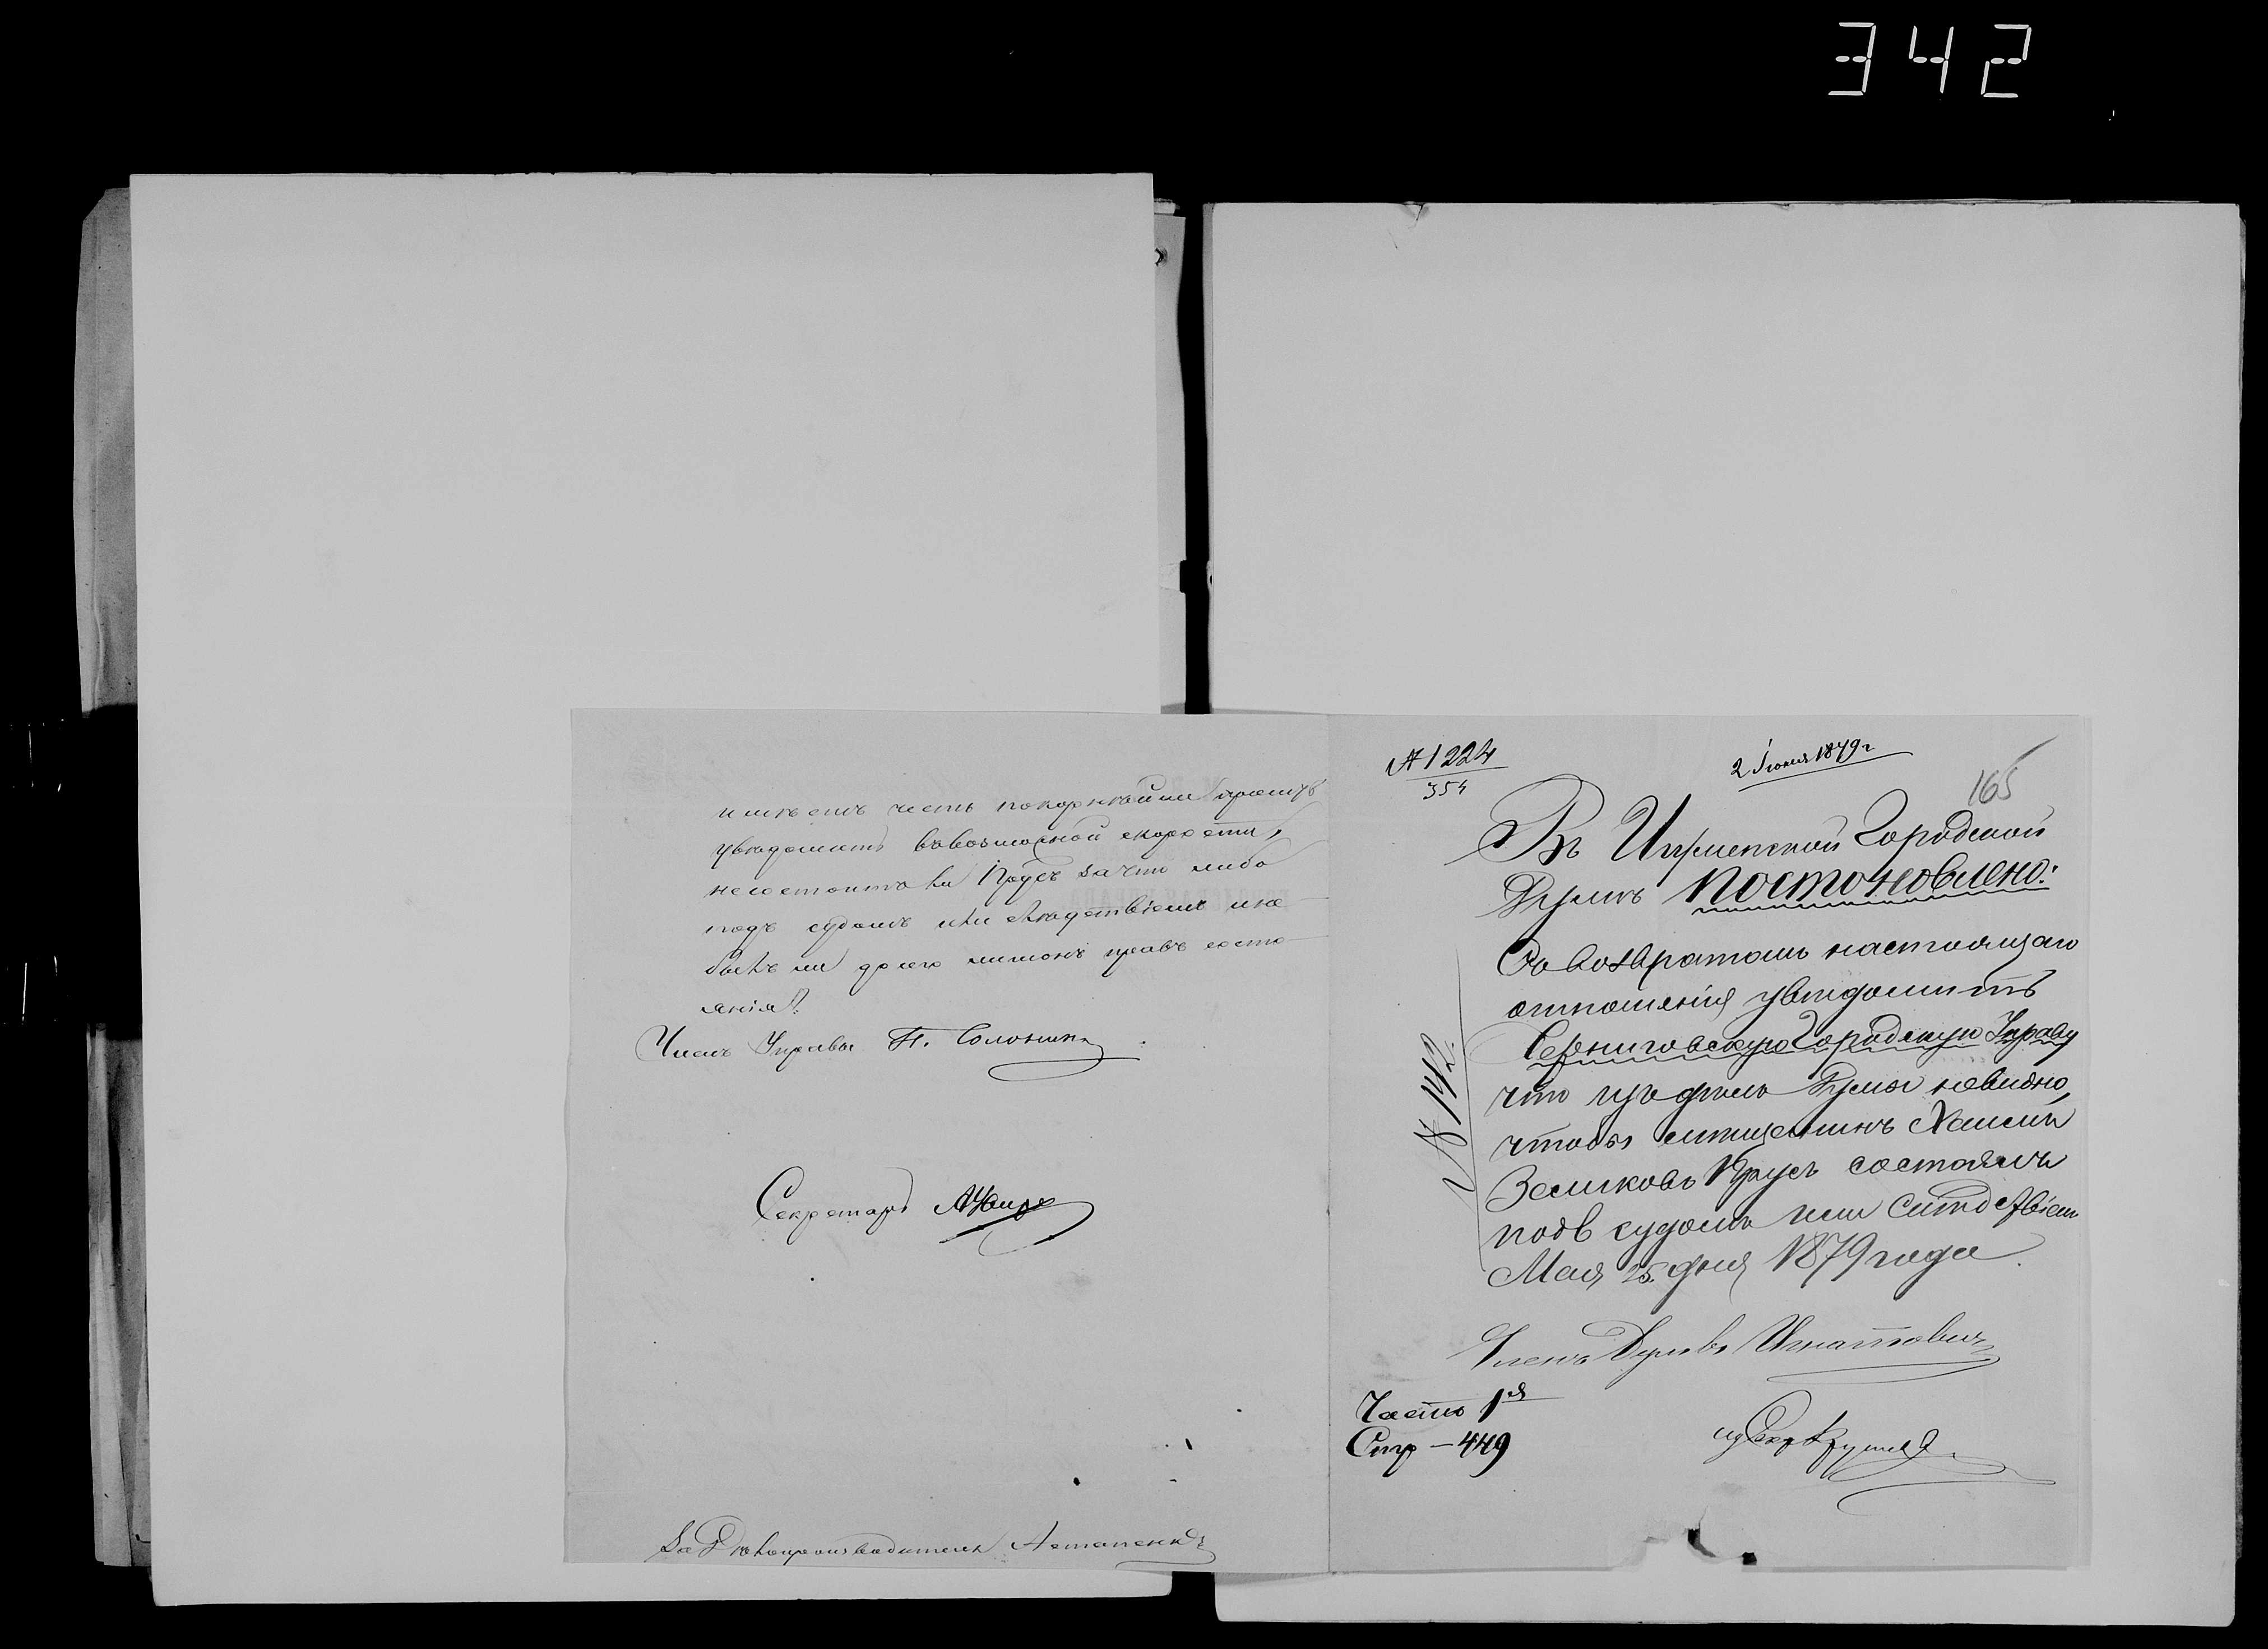 342
имѣетъ честь покорнѣйше просить
увѣдомить вовозможной скорости,
несостоитъ ли Крусъ зачто либо
подъ судомъ или слѣдствіемъ и не
былъ ли долго лишонъ правъ состо
янія?
Членъ Управы П. Солонина
Секретарь
За Дѣлопроизводителя Астапенко
№ 1224
354
2 Іюня 1879 г
165
Въ Игуменской Городской
Думѣ постоновлено:
Со возвратомъ настоящаго
отношенія увѣдомить
Черниговскую Городскую Управу
что изъ дѣлъ Думы невидно,
чтобы мѣщанинъ Хаимъ
Зеликовъ Крусъ состоялъ
подъ судомъ или слѣдствіем
Мая 25 дня 1879 года
Членъ Думы Игнатовичъ
Часть 1я
Стр – 449